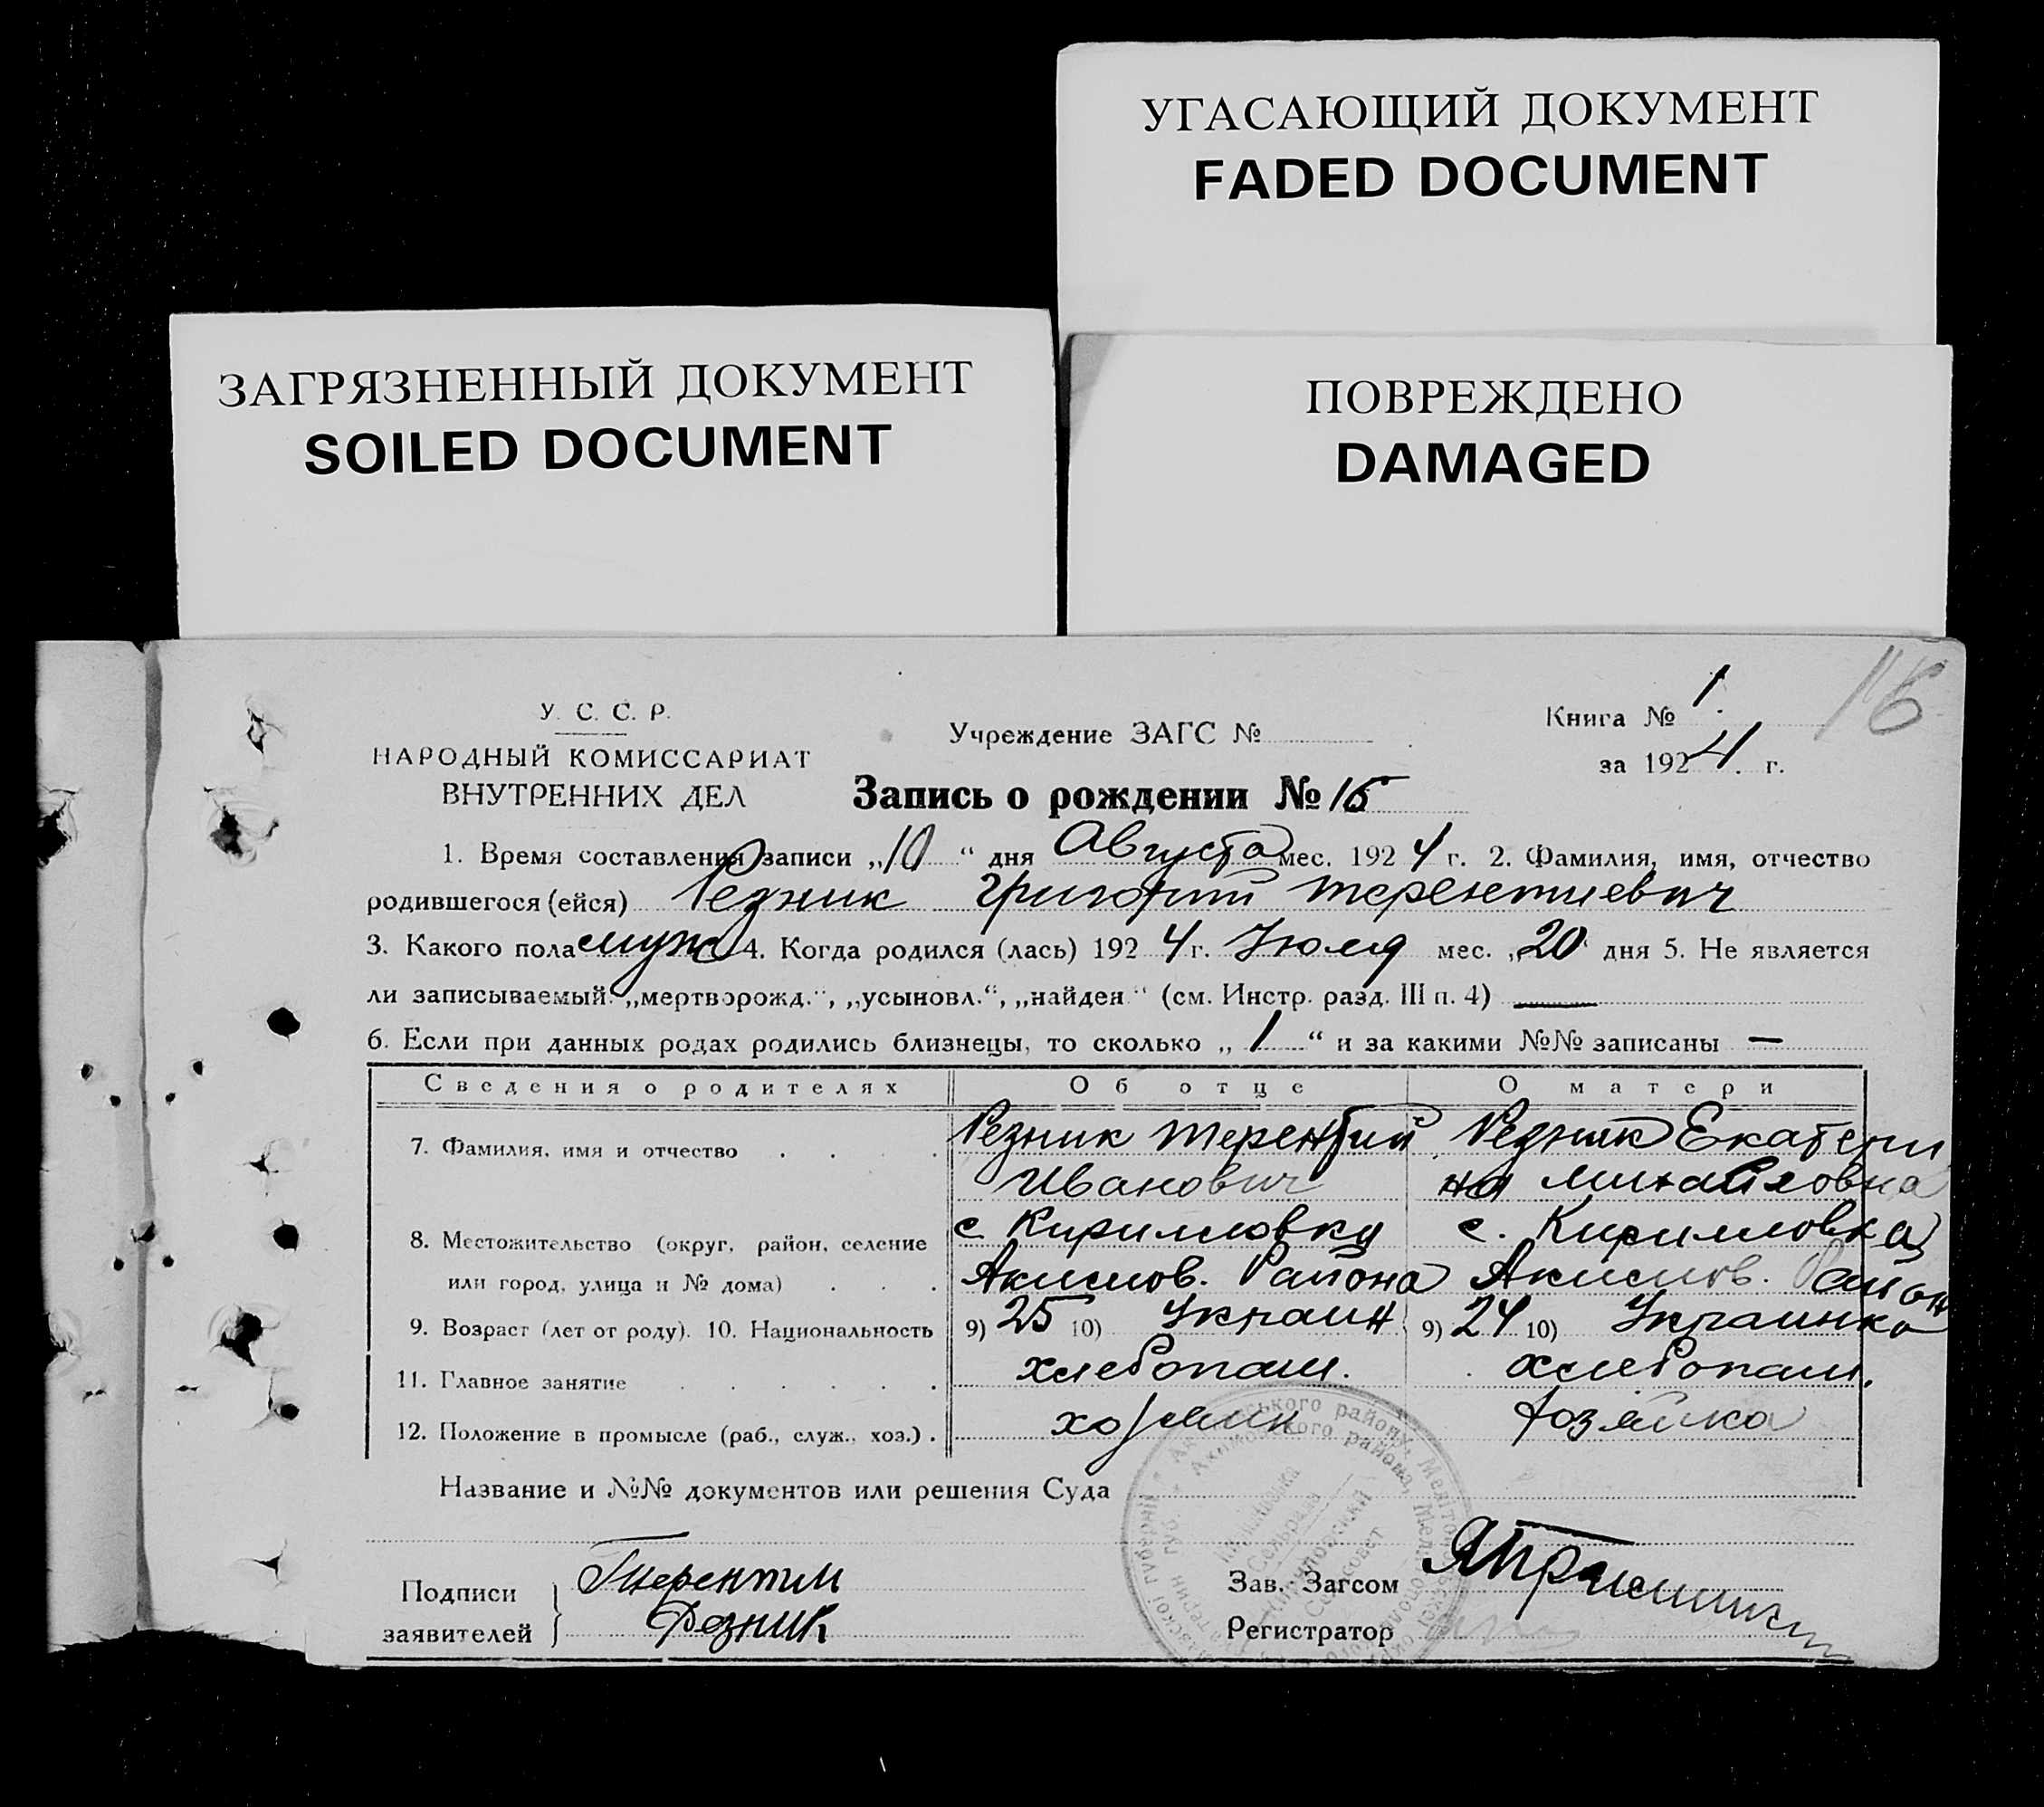 УГАСАЮЩИЙ ДОКУМЕНТ
FADED DOCUMENT
ЗАГРЯЗНЕННЫЙ ДОКУМЕНТ
SOILED DOCUMENT
ПОВРЕЖДЕНО
DAMAGED
16
У. С. С. Р.
НАРОДНЫЙ КОМИССАРИАТ
ВНУТРЕННИХ ДЕЛ
Учреждение ЗАГС №
Книга № 1.
за 1924 г.
Запись о рождении № 16
1. Время составления записи „10“ дня Августа мес. 1924 г. 2. Фамилия, имя, отчество
родившегося (ейся) Резник Григорий Терентиевич
3. Какого пола муж 4. Когда родился (лась) 1924 г. Июля мес. „20“ дня 5. Не является
ли записываемый: „мертворожд.“, „усыновл.“, „найден“ (см. Инстр. разд. III п. 4) —
6. Если при данных родах родились близнецы, то сколько „1“ и за какими №№ записаны —
Сведения о родителях Об отце О матери
7. Фамилия, имя и отчество Резник Терентий Резник Екатери
Иванович на Михайловна
8. Местожительство (округ, район, селение с. Кирилловка с. Кирилловка
или город, улица и № дома) Акимов. Района Акимов. Район
9. Возраст (лет от роду). 10. Национальность 9) 25 10) Украин 9) 24 10) Украинка
11. Главное занятие хлебопаш. хлебопаш.
12. Положение в промысле (раб., служ., хоз.) хозяин хозяйка
Название и №№ документов или решения Суда
Акимовского района
Подписи заявителей Терентий
Резник
Зав. Загсом
Регистратор